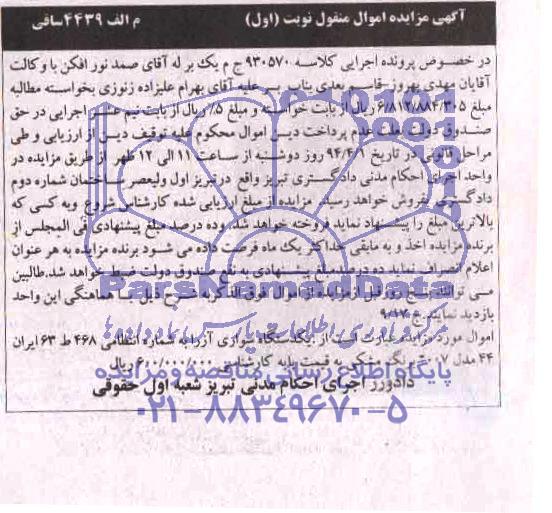 آگهی مزایده اموال منقول نوبت (اول) م الف ۴۴۳۹ساقی
در خصوص پرونده اجرایی کلاسه ۹۳۰۵۷۰ ج م یک بر له آقای صمد نور افکن با وکالت
آقایان مهدی بهروز-قاسم بعدی بناب بر علیه آقای بهرام علیزاده زنوزی بخواسته مطالبه
مبلغ ۶/۸۱۲/۸۸۴/۳۰۵ ریال از بابت خواسته و مبلغ ۵٪ ریال از بابت نیم عشر اجرایی در حق
صندوق دولت بعلت عدم پرداخت دین اموال محکوم علیه توقیف و پس از ارزیابی و طی
مراحل قانونی در تاریخ ۹۴/۴/۱ روز دوشنبه از ساعت ۱۱ الی ۱۲ ظهر از طریق مزایده در
واحد اجرای احکام مدنی دادگستری تبریز واقع در تبریز اول ولیعصر ساختمان شماره دوم
دادگستری بفروش خواهد رسید. مزایده از مبلغ ارزیابی شده کارشناس شروع و به کسی که
بالاترین مبلغ را پیشنهاد نماید فروخته خواهد شد. وده درصد مبلغ پیشنهادی فی المجلس از
برنده مزایده اخذ و به مابقی حداکثر یک ماه فرصت داده می شود برنده مزایده به هر عنوان
اعلام انصراف نماید ده درصد مبلغ پیشنهادی به نفع صندوق دولت ضبط خواهد شد. طالبین
می توانند پنج روز قبل از مزایده از اموال فوق الذکر به شرح ذیل با هماهنگی این واحد
بازدید نمایند.
اموال مورد مزایده عبارت است از یکدستگاه سواری آزرا به شماره انتظامی ۴۶۸ ط ۶۳ ایران
۴۴ مدل ۲۰۰۷ برنگ مشکی به قیمت پایه کارشناس ۶۰۰/۰۰۰/۰۰۰ ریال
دادورز اجرای احکام مدنی تبریز شعبه اول حقوقی
ParsNamadData
مرکز فرآوری اطلاعات پارس نماد داده ها
پایگاه اطلاع رسانی مناقصه و مزایده
۰۲۱-۸۸۳۴۹۶۷۰-۵